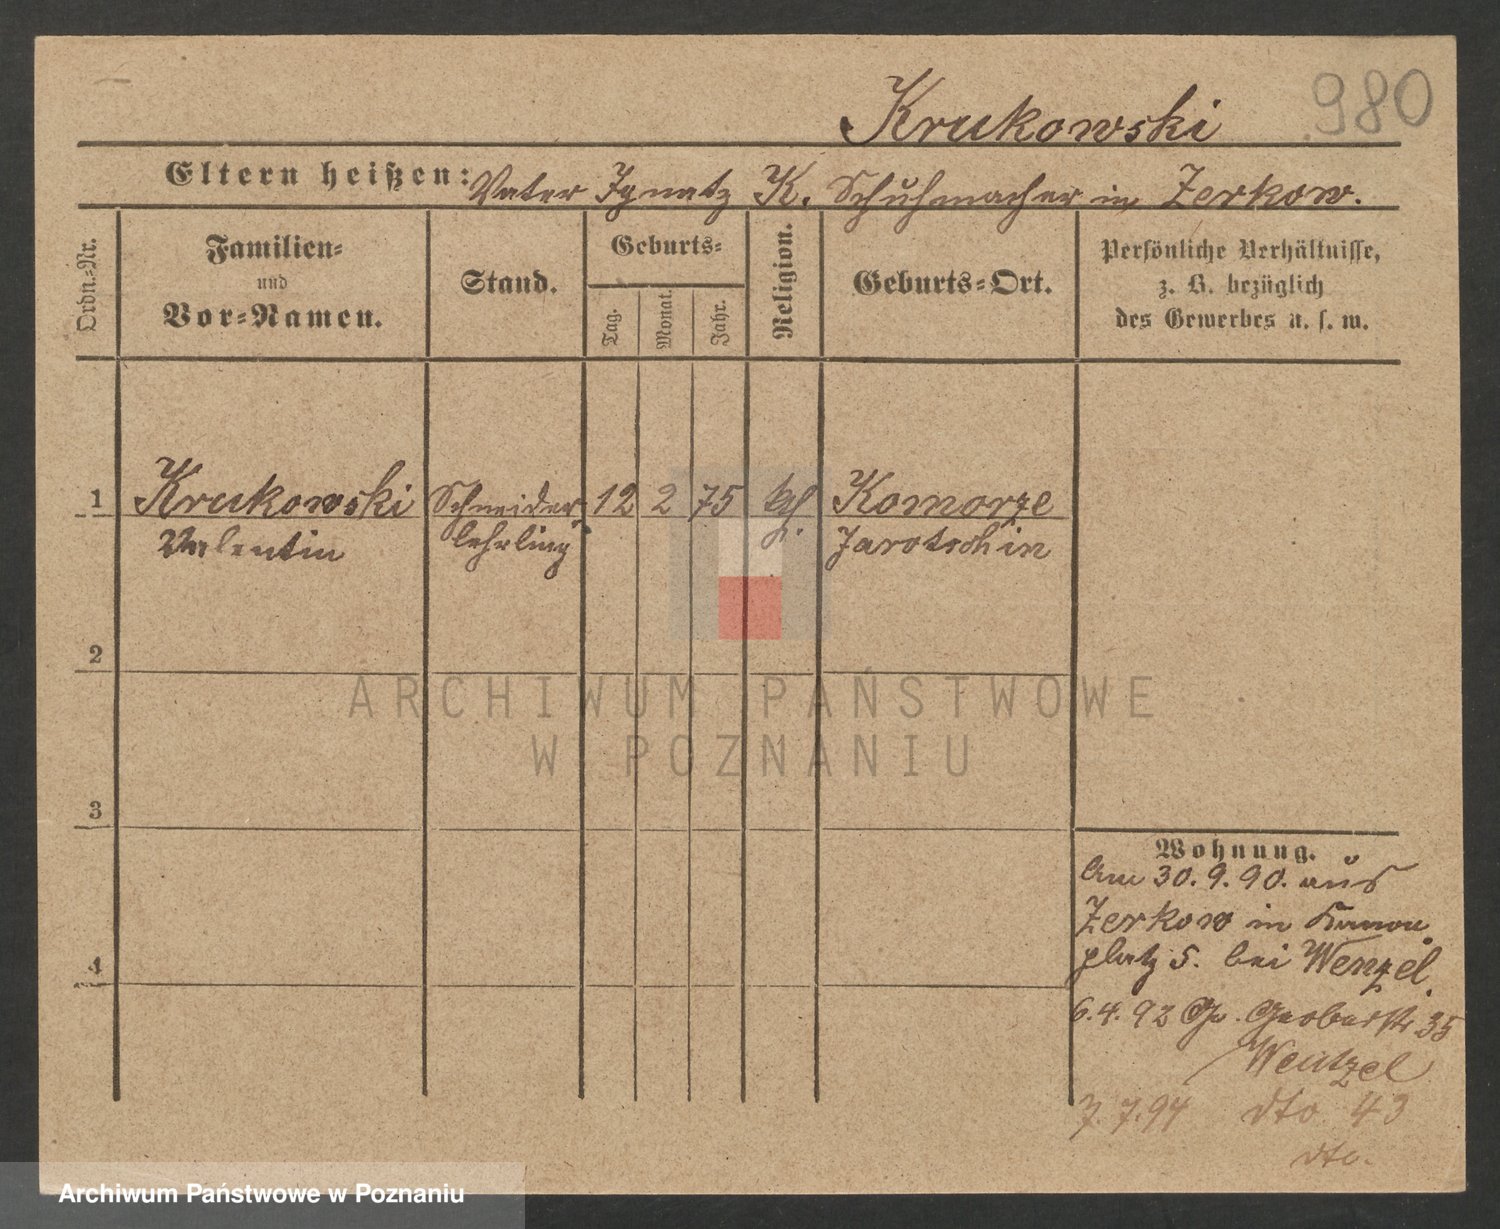 Krukowski 980
Eltern heißen: Vater Ignatz K. Schuhmacher in Zerkow.
Ordn.=Nr.
Familien=
und
Vor=Namen.
Stand.
Geburts=
Tag.
Monat.
Jahr.
Religion.
Geburts=Ort.
Persönliche Verhältnisse,
z. B. bezüglich
des Gewerbes u. s. w.
1 Krukowski Schneider 12 2 75 kf. Komorze
Valentin lehrling Jarotschin
2
3
4
Wohnung.
Am 30.9.90. aus
Zerkow in Kanonen
platz 5. bei Wenzel.
6.4.92 Gr. Gerberstr. 35
Wentzel
7.7.94 dto 43
dto.
ARCHIWUM PAŃSTWOWE
W POZNANIU
Archiwum Państwowe w Poznaniu